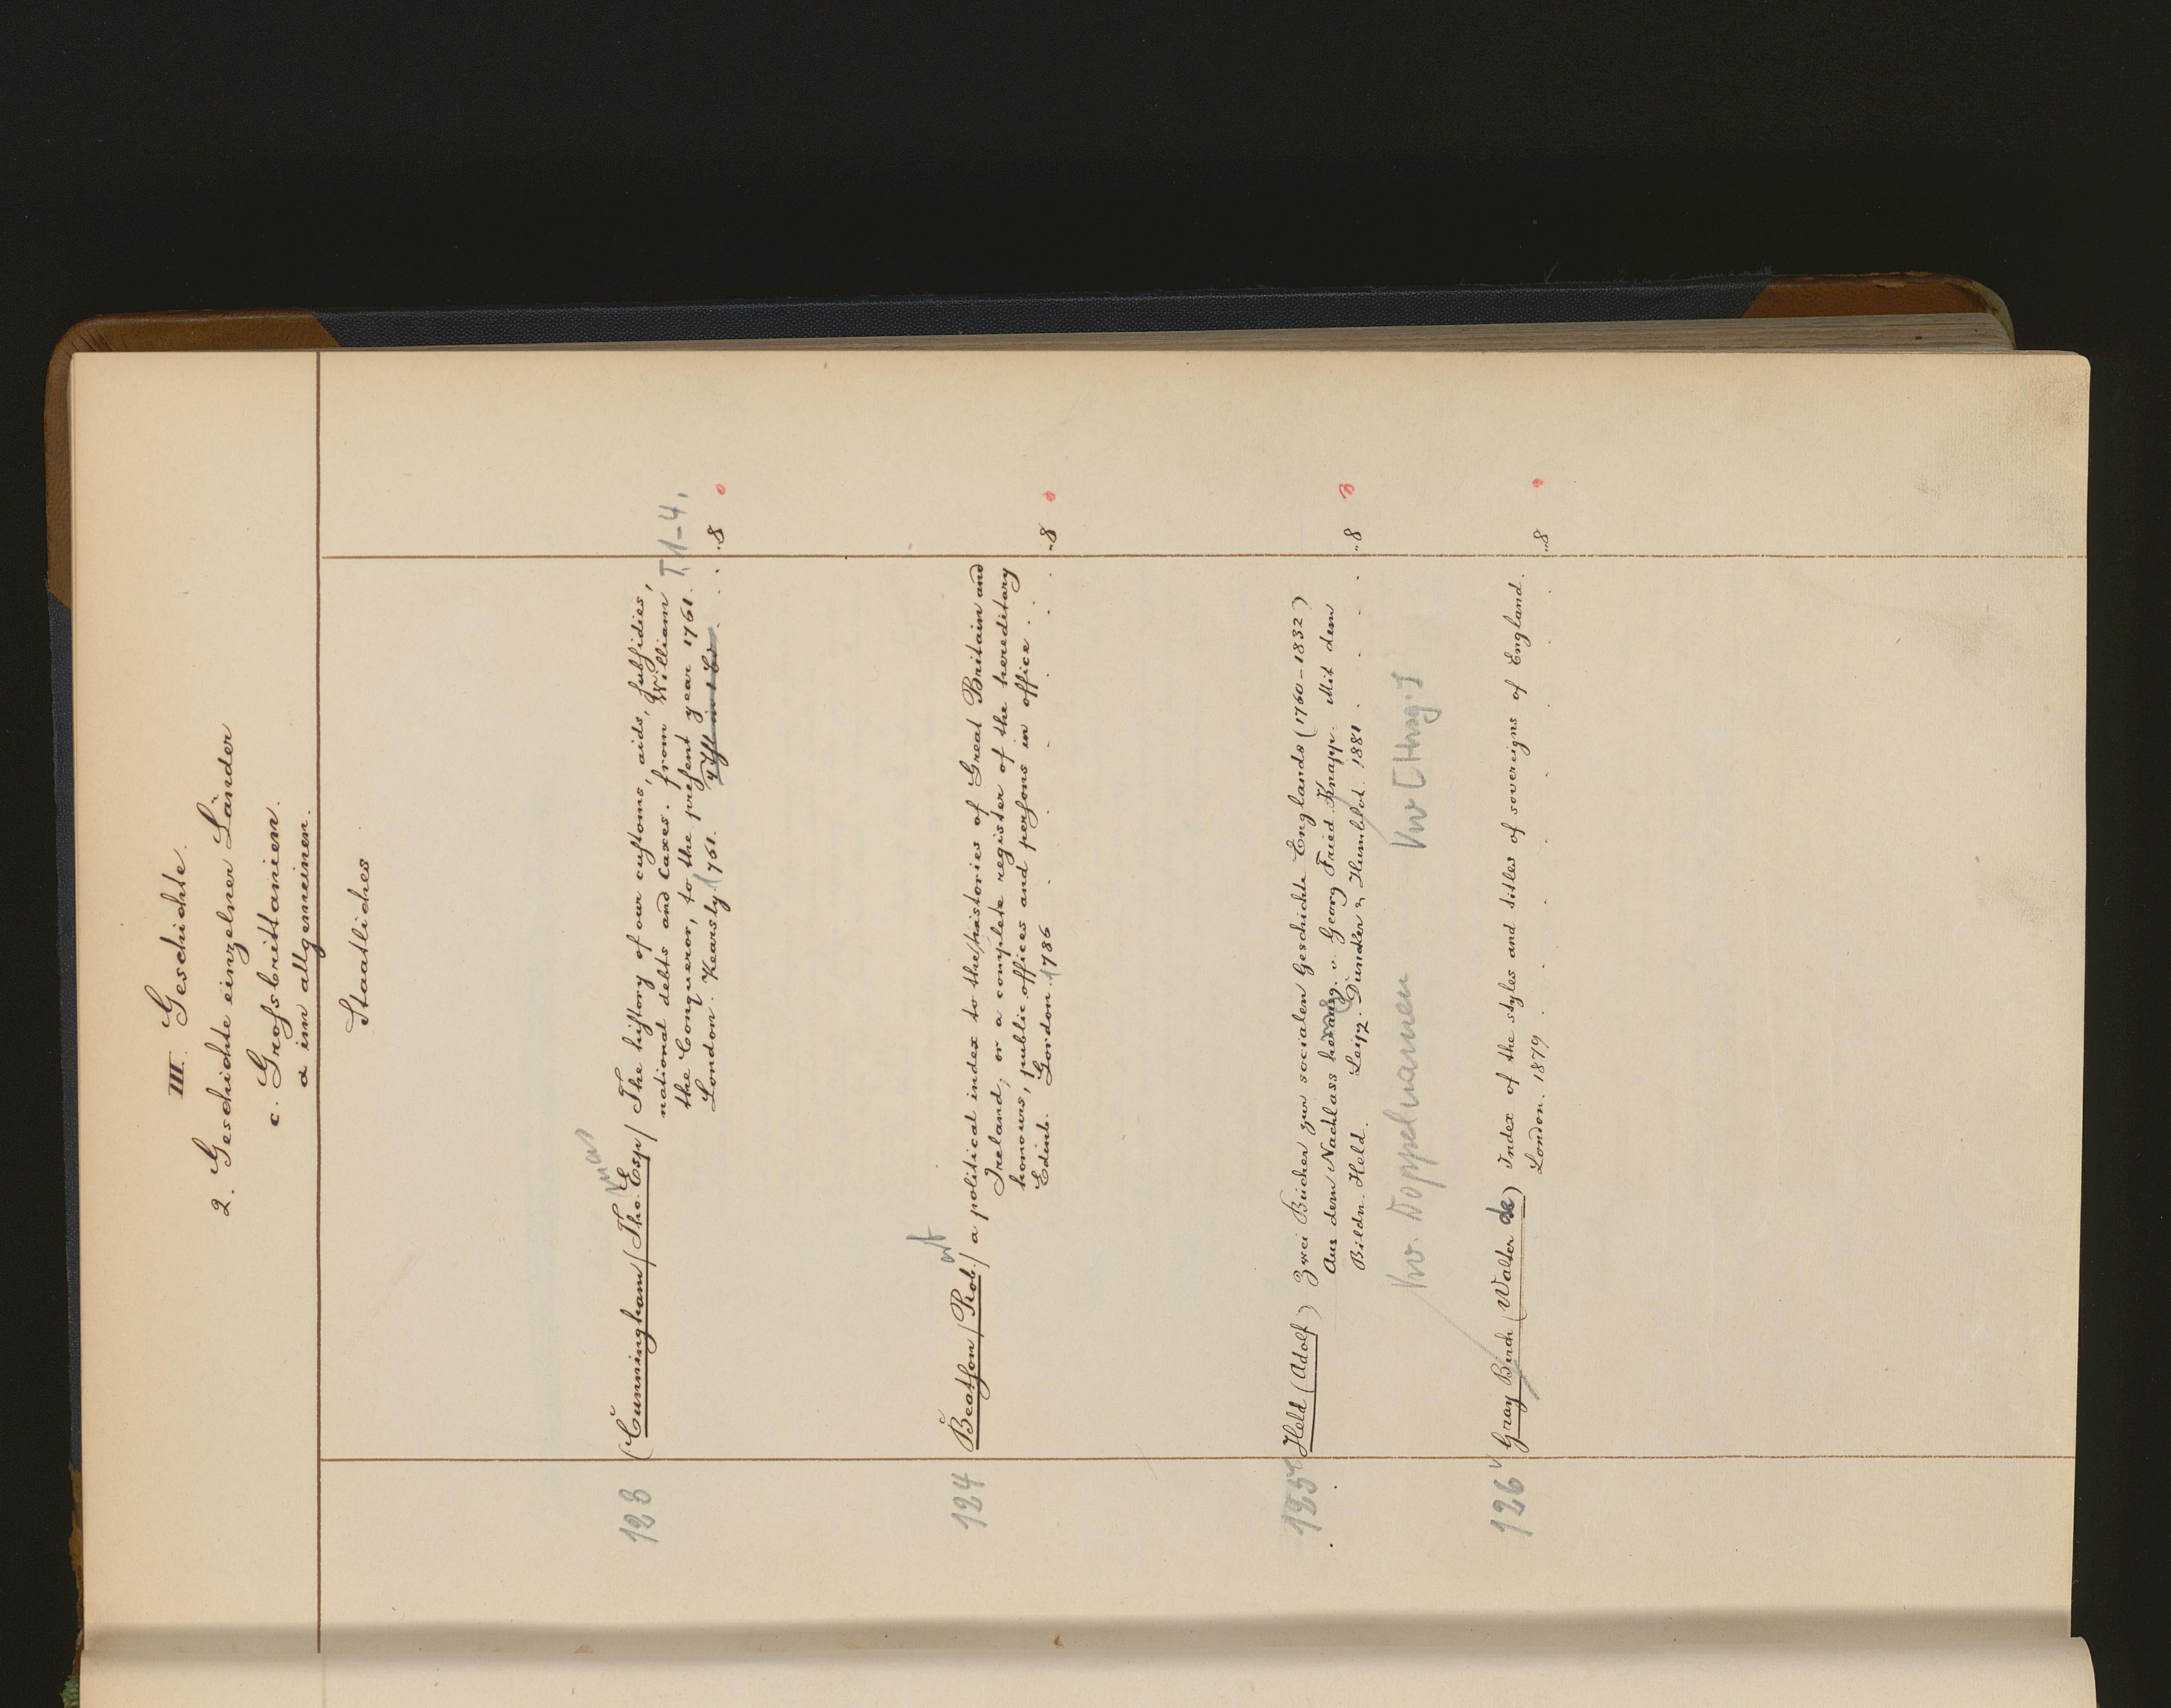 III. Geschichte.
2. Geschichte einzelner Länder
c. Grofsbrittanien.
a im allgemeinen.
Staatliches
123 (Cunningham (Tho. Esp) The hiftory of our cuftoms, aids, fubfidies,
mas
national debts and taxes. from William,
the Conqueror, to the prefent year 1761. T. 1-4,
London. Kearsly. 1761. 8
124 Beatfon (Rob.) a political index to the histories of Great Britain and
ert
Ireland, or a complete register of the hereditary
honours, public offices and perfons in office . .
Edinb. Gordon. 1786 8
125 Held (Adolf) Zwei Bücher zur socialen Geschichte Englands (1760-1832)
Aus dem Nachlass v. Georg Fried. Knapp. Mit dem
Bildn. Held. Leipz. Duncker & Humblot. 1881 8
vw. Doppelnamen vw [Hrsg.]
126 Gray Birch (Walter de) Index of the styles and titles of sovereigns of England.
London. 1879 8